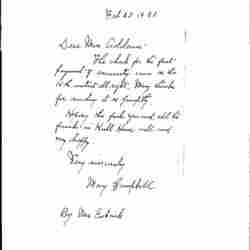 Dear Miss Addams:
The check for the first
payment of annuity came in the
all right. Many thanks
for sending it so promptly.
Hoping this finds you and all the
friends in Hull House well and
very happy.
Very sincerely
Mary Campbell
By Mrs